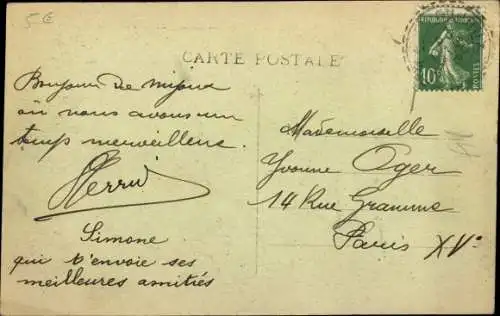 5€
CARTE POSTALE
REPUBLIQUE FRANÇAISE
10c
POSTES
Bonjour de
où nous avons un
temps merveilleux.
Simone
qui t'envoie ses
meilleures amitiés
Mademoiselle
Yvonne Oger
14 Rue Gramme
Paris XVe